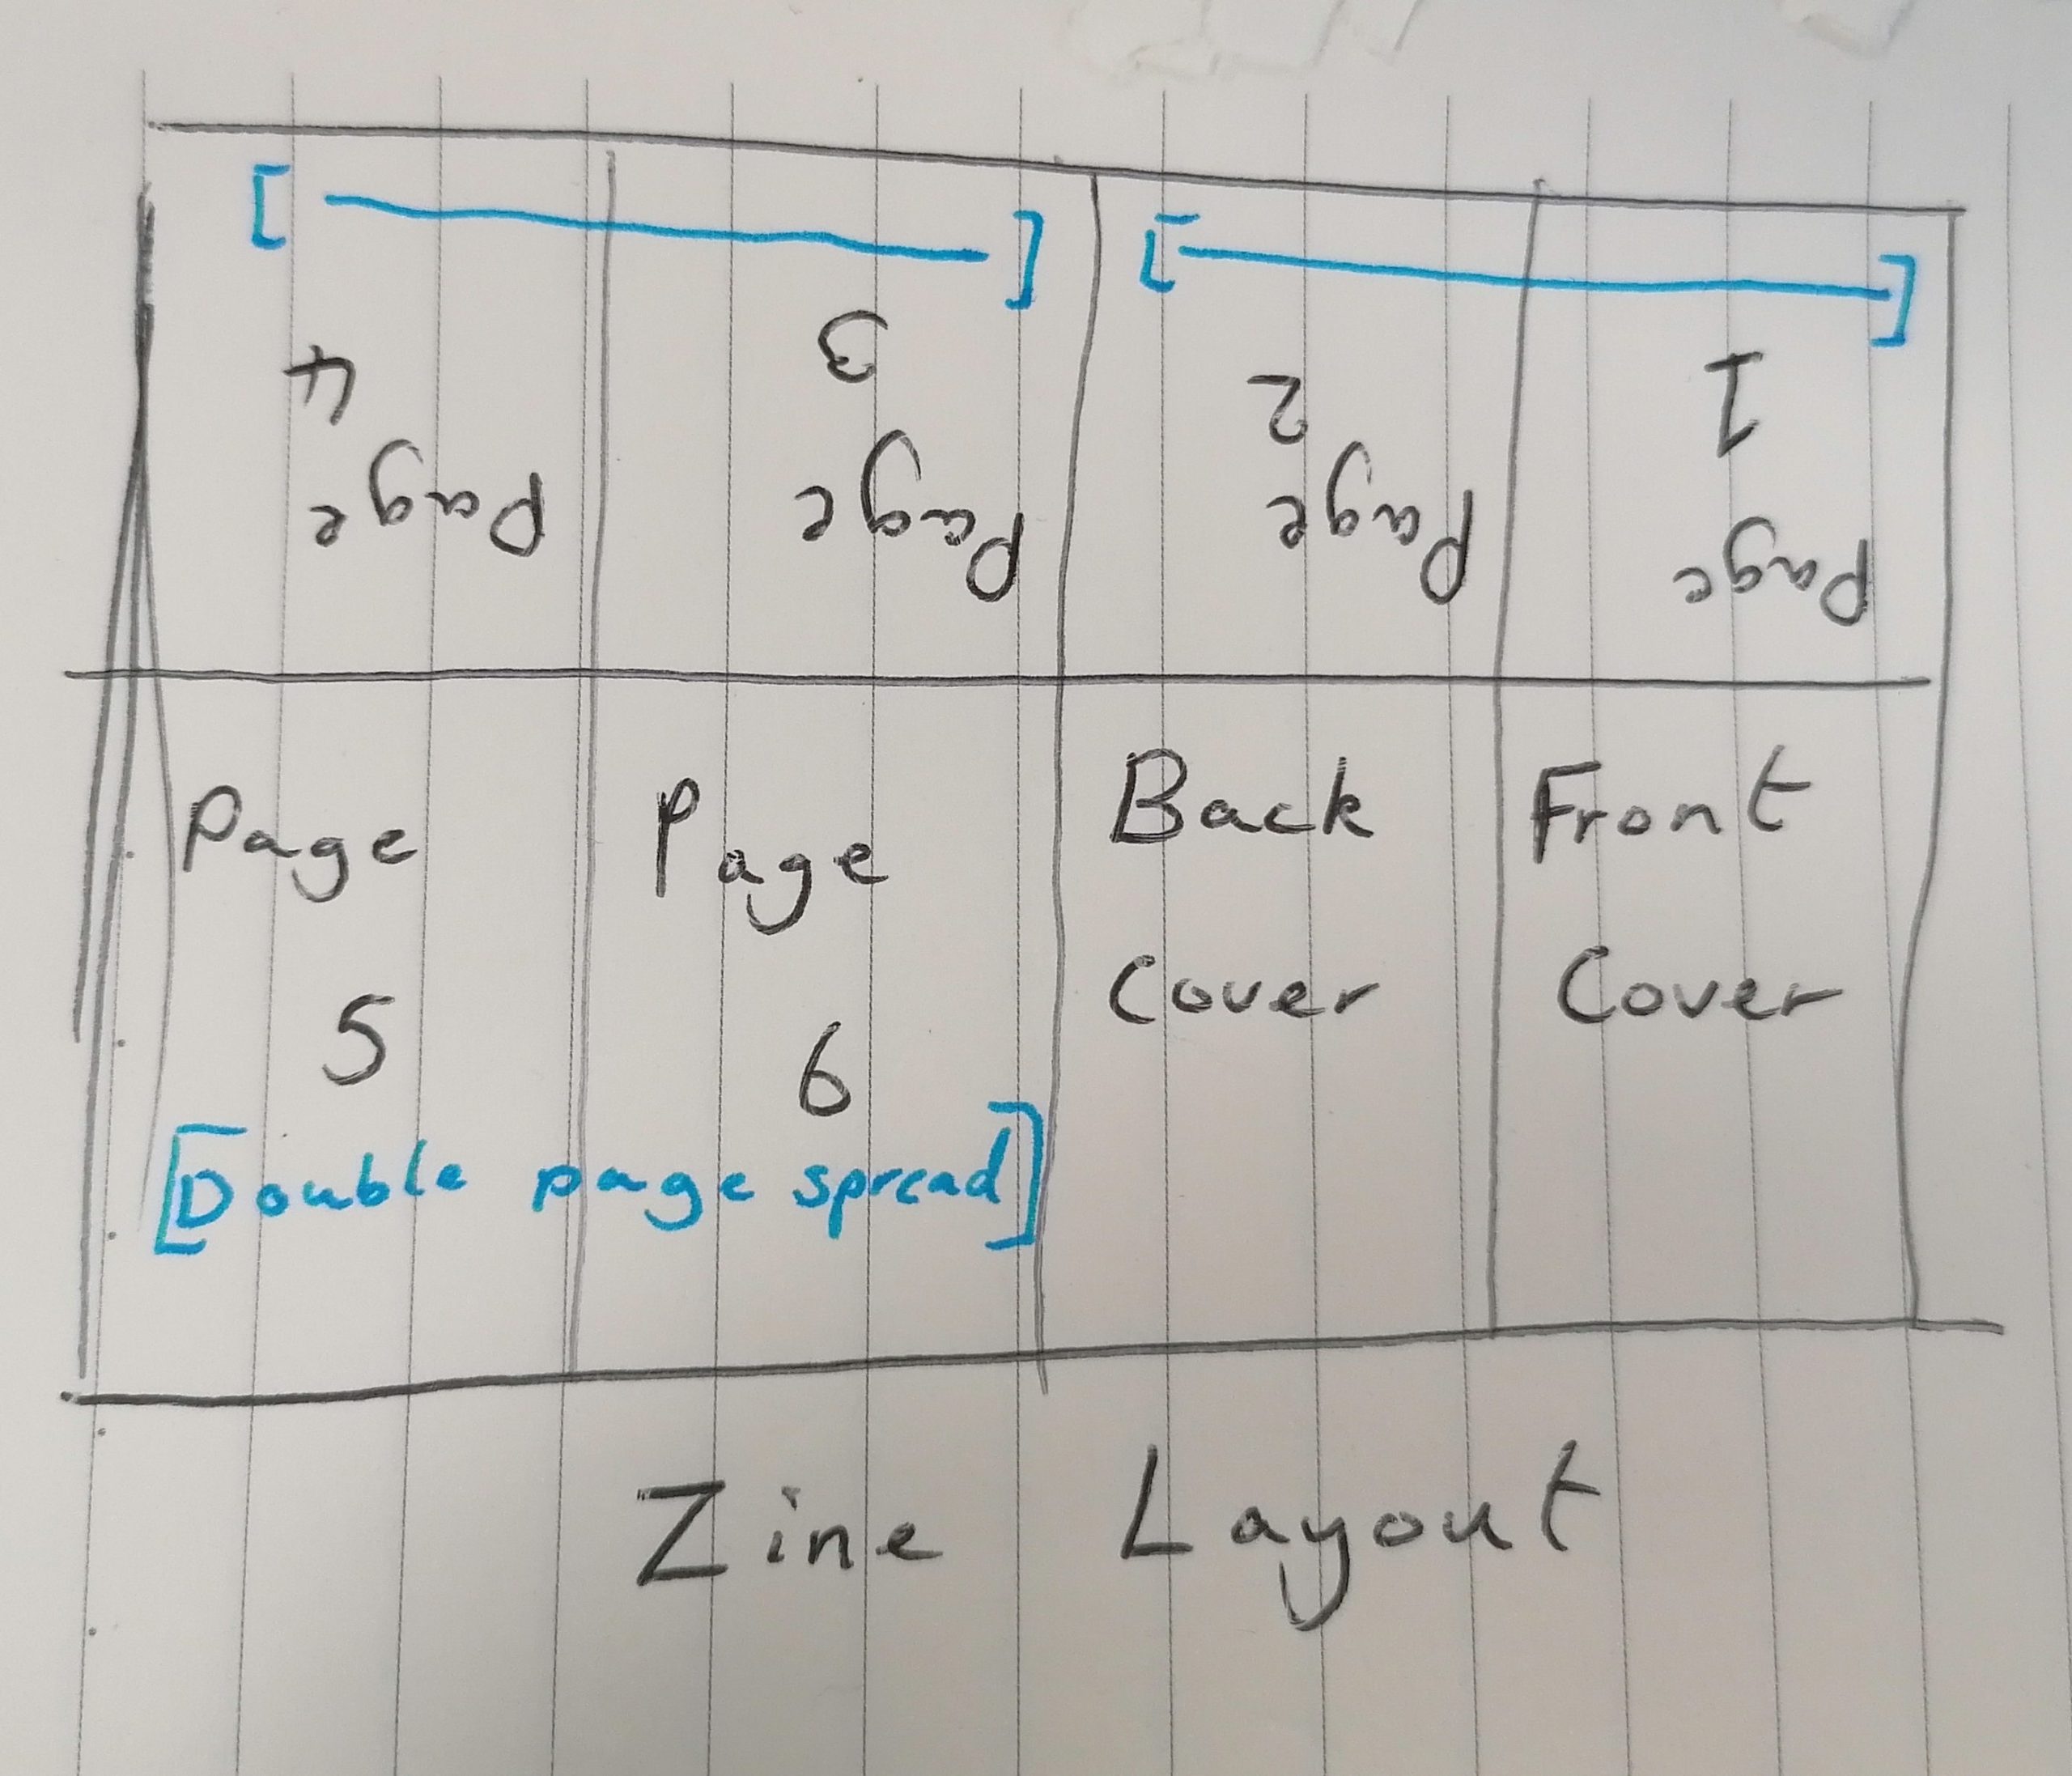 Page
4
Page
3
Page
2
Page
1
Page
5
Page
6
[Double page spread]
Back
Cover
Front
Cover
Zine Layout